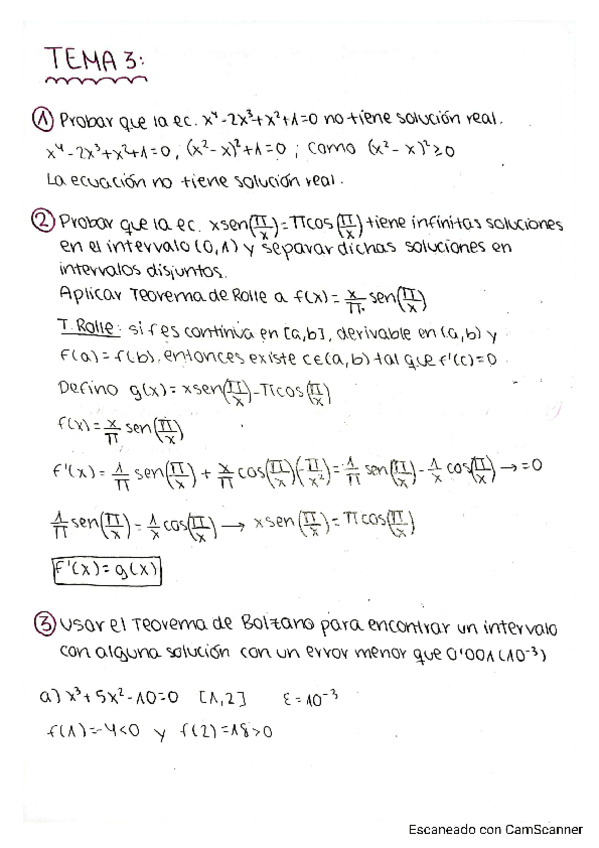 TEMA 3:
① Probar que la ec. x⁴-2x³+x²+1=0 no tiene solución real.
x⁴-2x³+x²+1=0 ; (x²-x)²+1=0 ; como (x²-x)²≥0
La ecuación no tiene solución real.
② Probar que la ec. xsen(π/x)=πcos(π/x) tiene infinitas soluciones
en el intervalo (0,1) y separar dichas soluciones en
intervalos disjuntos.
Aplicar Teorema de Rolle a f(x)= x/π sen(π/x)
T. Rolle: si f es continua en [a,b], derivable en (a,b) y
f(a)=f(b), entonces existe c∈(a,b) tal que f'(c)=0
Defino g(x)=xsen(π/x)-πcos(π/x)
f(x)= x/π sen(π/x)
f'(x)= 1/π sen(π/x) + x/π cos(π/x)(-π/x²)= 1/π sen(π/x) - 1/x cos(π/x) → =0
1/π sen(π/x)= 1/x cos(π/x) → xsen(π/x)=πcos(π/x)
f'(x)=g(x)
③ Usar el Teorema de Bolzano para encontrar un intervalo
con alguna solución con un error menor que 0'001 (10⁻³)
a) x³+5x²-10=0 [1,2] ε=10⁻³
f(1)=-4<0 y f(2)=18>0
Escaneado con CamScanner